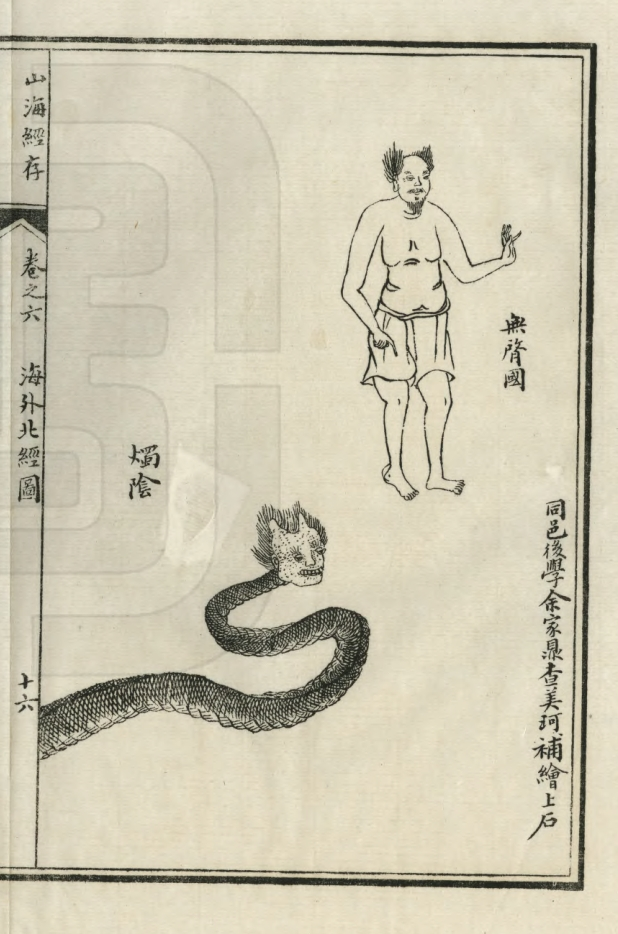 同邑後學余家鼎查美珂補繪上石
無䏿國
燭陰
山海經存
卷之六
海外北經圖
十六